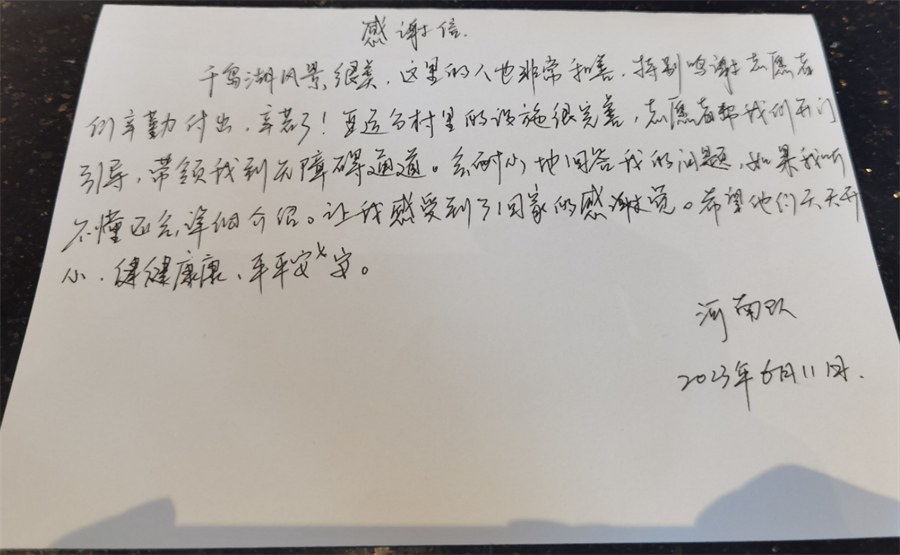 感谢信
千岛湖风景很美，这里的人也非常和善，特别鸣谢志愿者
们辛勤付出，辛苦了！亚运分村里的设施很完善，志愿者帮我们开门
引导，带领我到无障碍通道。会耐心地回答我的问题，如果我听
不懂还会详细介绍。让我感受到了回家的感谢觉。希望他们天天开
心、健健康康、平平安安。
河南队
2023年6月11日.